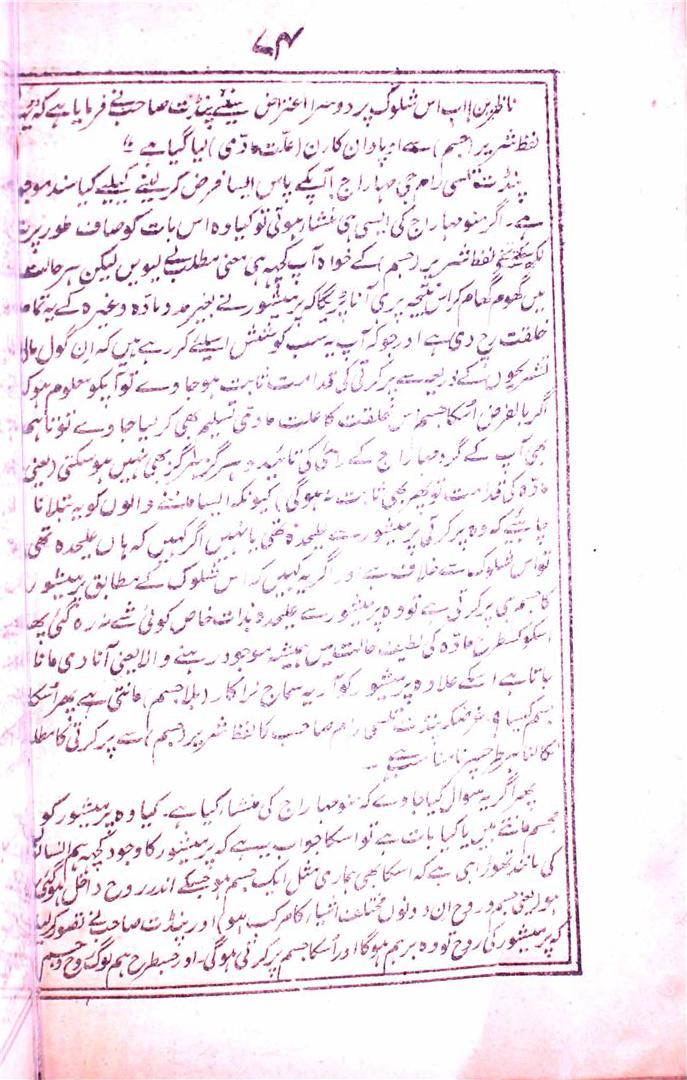 ۷۴
ناظرین! اب اس شلوک پر دوسرا اعتراض سنیئے پنڈت صاحب نے فرمایا ہے کہ یہ
لفظ شریر (جسم) سے اوپادان کارن (علت مادی) لیا گیا ہے ؂
پنڈت تلسی رام جی مہاراج آپکے پاس ایسا فرض کر لینے کیلئے کیا سند موجو
ہے۔ اگر منو مہاراج کی ایسی ہی منشار ہوتی تو کیا وہ اس بات کو صاف طور پر
لفظ شریر (جسم) کے خواہ آپ کچھ ہی معنی مطلب لے لیویں لیکن ہر حالت
میں گھوم گھام کر اس نتیجہ پر ہی آنا پڑیگا کہ پرمیشور نے بغیر مدد مادّہ وغیرہ کے یہ تمام
خلقت رچ دی ہے اور جو کہ آپ یہ سب کوشش اسلئے کر رہے ہیں کہ ان گول مال
تشریحوں کے ذریعہ سے پرکرتی کی قدامت ثابت ہو جاوے تو آپکو معلوم ہو کہ
اگر بالفرض اُسکا جسم اس خلقت کا علت مادی تسلیم بھی کر لیا جاوے تو تاہم
بھی آپ کے گرو مہاراج کے دعویٰ کی تائید ہرگز ہرگز بھی نہیں ہو سکتی (یعنی
مادّہ کی قدامت تو پھر بھی ثابت نہ ہوگی) کیونکہ ایسا ماننے والوں کو یہ بتلانا
چاہئے کہ وہ پرکرتی پرمیشور سے علیحدہ تھی یا نہیں اگر کہیں کہ ہاں علیحدہ تھی
تو اس شلوک سے خلاف ہے اور اگر یہ کہیں کہ اس شلوک کے مطابق پرمیشور
کا جسم ہی پرکرتی ہے تو وہ پرمیشور سے علیحدہ بذات خاص کوئی شے نہ رہ گئی پھر
اسکو کسطرح مادّہ کی لطیف حالت میں ہمیشہ موجود رہنے والا یعنی آنادی مانا
جاتا ہے اسکے علاوہ پرمیشور کو آریہ سماج نراکار (بلا جسم) مانتی ہے پھر اُسکا
جسم کیسا ؟ غرضکہ پنڈت تلسی رام صاحب کا لفظ شریر (جسم) سے پرکرتی کا مطلب
نکالنا ہر طرح پر نامناسب ہے۔
پھر اگر یہ سوال کیا جاوے کہ منو مہاراج کی منشار کیا ہے۔ کیا وہ پرمیشور کو
مجسم مانتے ہیں یا کیا بات ہے تو اسکا جواب یہ ہے کہ پرمیشور کا وجود کچھ ہم انسانوں
کی مانند تھوڑا ہی ہے کہ اسکا بھی ہماری مثل ایک جسم ہو جسکے اندر روح داخل ہو گئی
ہو (یعنی جسم و روح ان دونوں مختلف اشیار کا مرکب ہو) اور پنڈت صاحب نے تصور کر لیا
کہ پرمیشور کی روح تو وہ برہم ہوگا اور اُسکا جسم پرکرتی ہوگی۔ اور جسطرح ہم لوگ روح و جسم